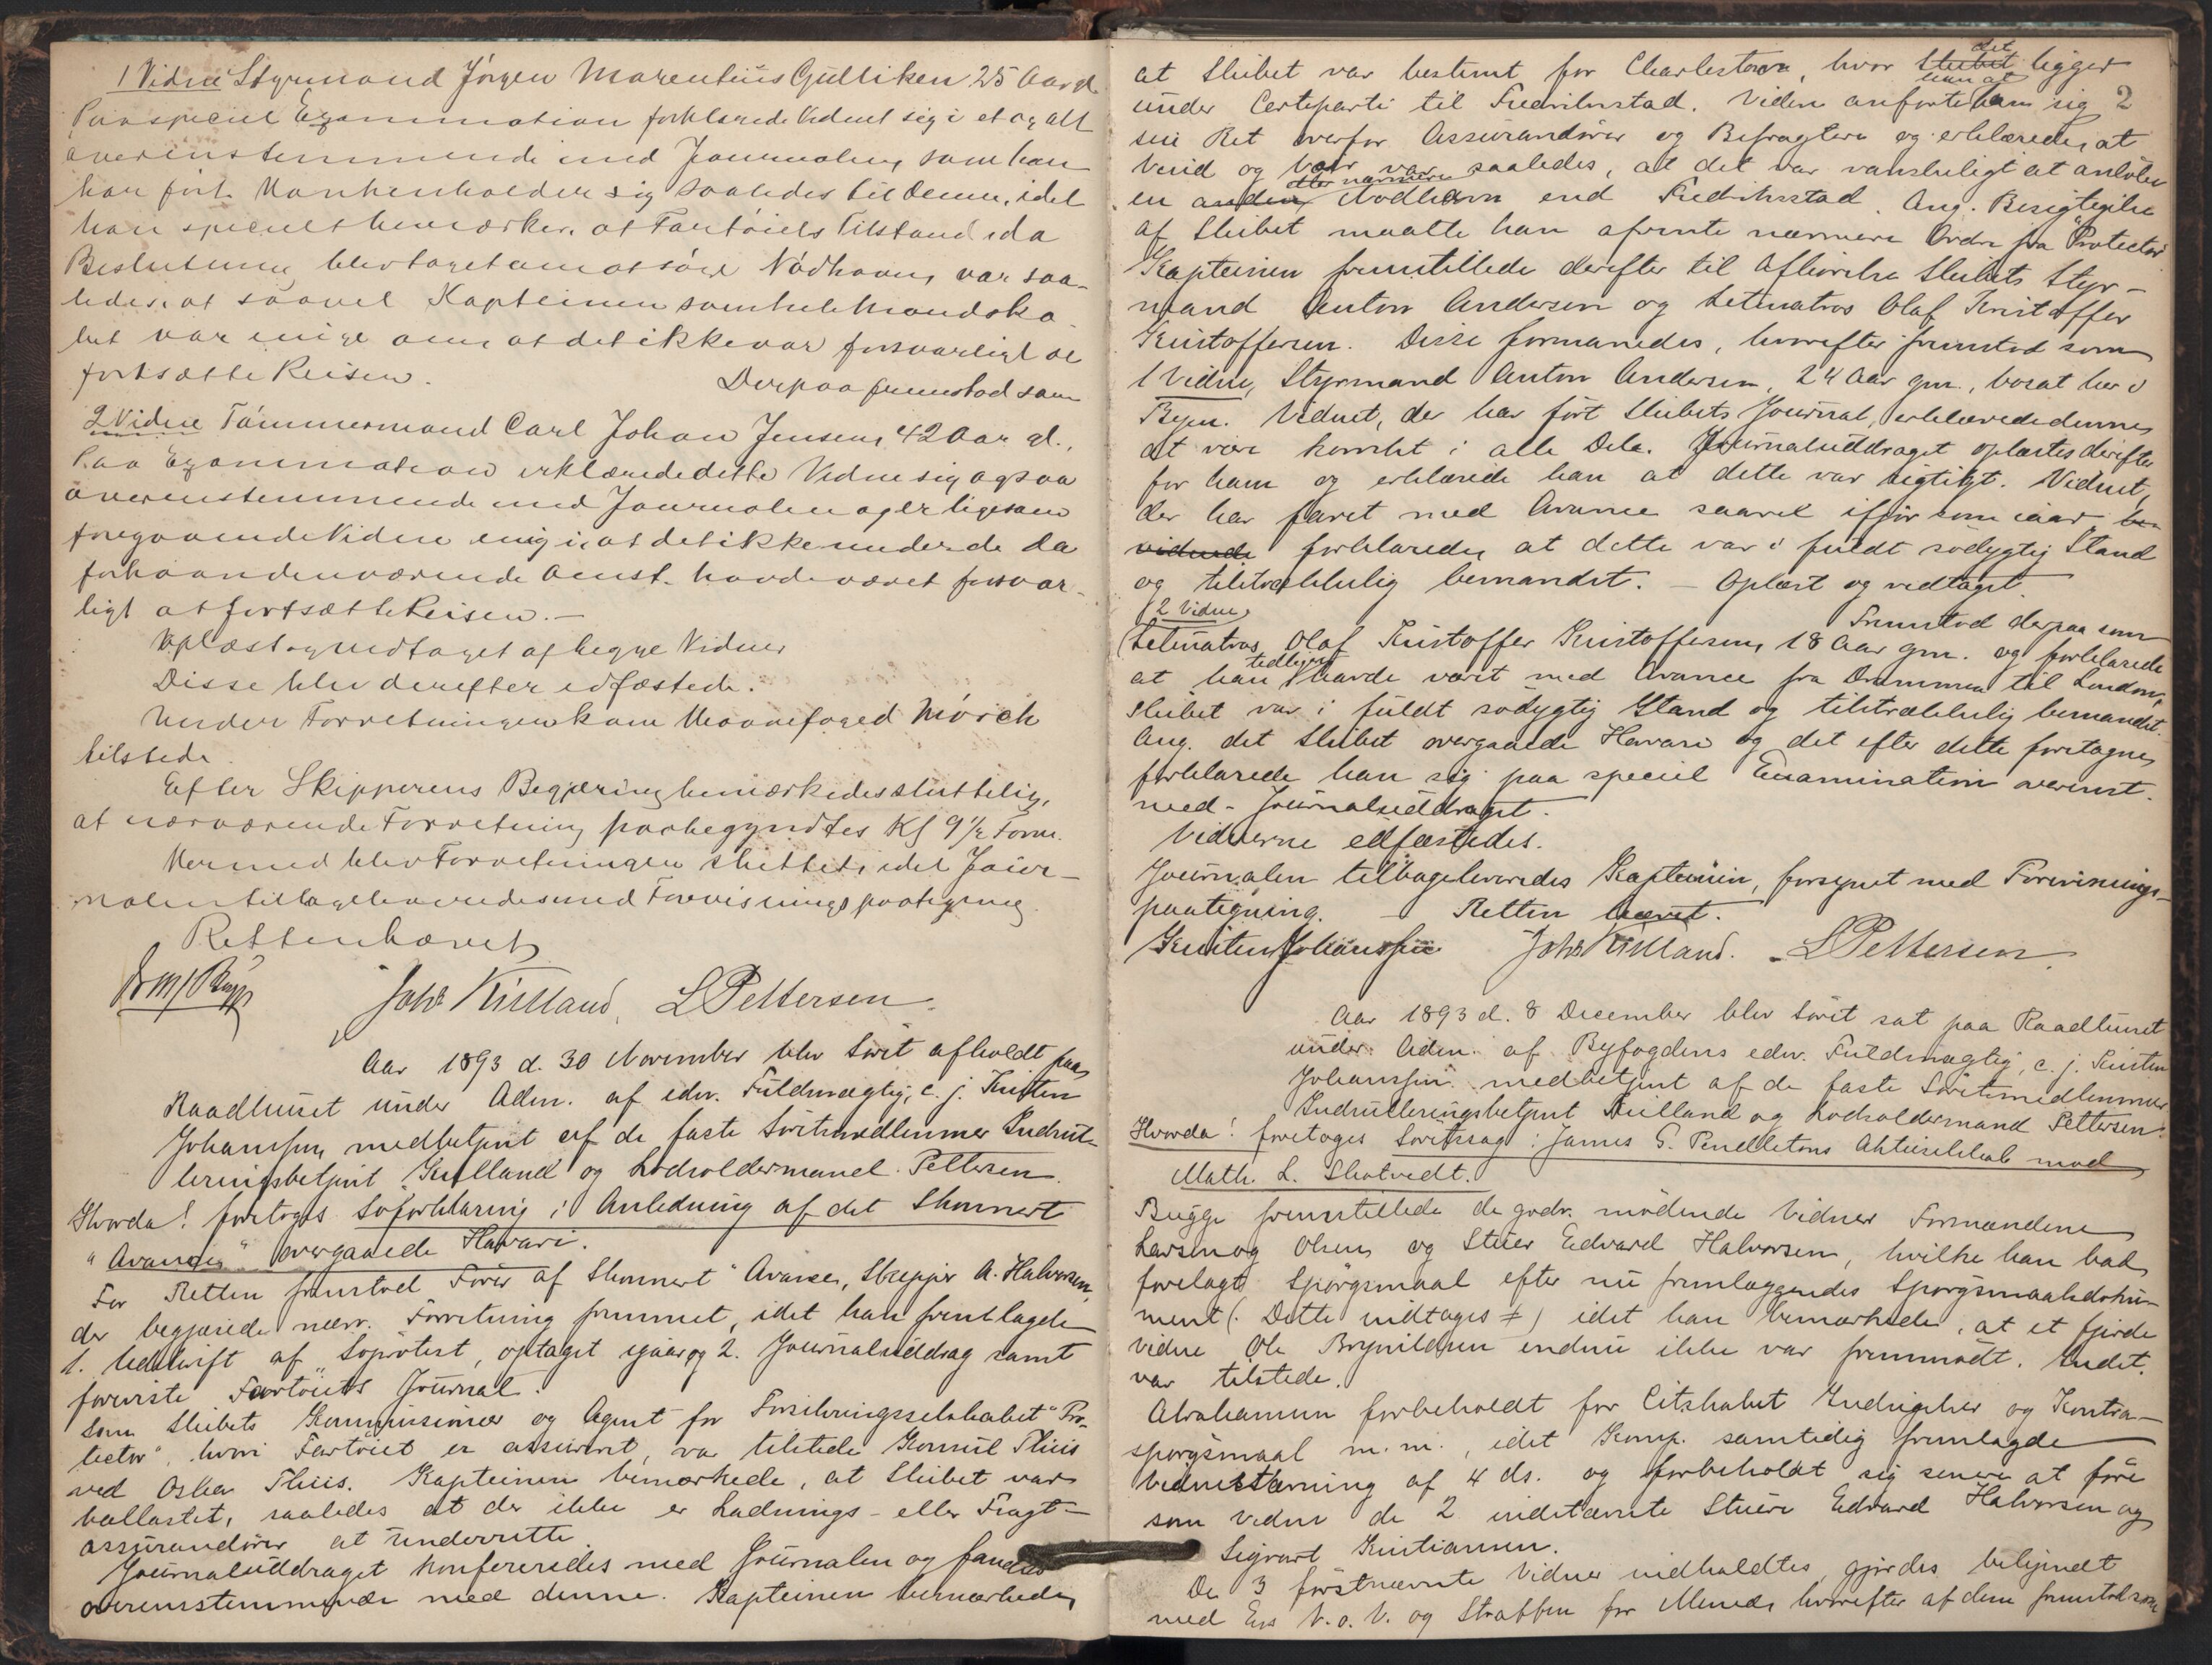 1 Vidne Styrmand Jörgen Marentius Gulliksen 25 Aar gl.
Paa speciel Examination forklarede Vidnet sig i et og alt
overensstemmende med Journalen, som han
har fört. Han henholder sig saaledes til denne, idet
han specielt bemærker, at Fartöiets Tilstand, da
Beslutning blev taget om at söge Nödhavn, var saa-
ledes, at saavel Kapteinen som hele Mandska-
bet var enige om at det ikke var forsvarligt at
fortsætte Reisen. Derpaa fremstod som
2 Vidne Tömmermand Carl Johan Jensen, 42 Aar gl.,
Paa Examination erklærede dette Vidne sig ogsaa
overensstemmende med Journalen og er ligesom
foregaaende Vidne enig i, at det ikke under de da
forhaandenværende Omst. havde været forsvar-
ligt at fortsætte Reisen.-
Oplæst og vedtaget af begge Vidner
Disse blev derefter edfæstede.
Under Forretningen kom Havnefoged Mörch
tilstede.
Efter Skipperens Begjæring bemærkedes sluttelig,
at nærværende Forretning paabegyndtes Kl 9 1/2 Form.
Hermed blev Forretningen sluttet, idet Jour-
nalen tilbageleveredes med Forevisningspaategning.
Retten hævet
Joh. Kielland, L Pettersen.
Aar 1893 d. 30 November blev Söret afholdt paa
Raadhuset under Adm. af edsv. Fuldmægtig, c. j. Kristen
Johanssen, medbetjent af de faste Söretsmedlemmer Indrul-
leringsbetjent Kielland og Lodsoldermand Pettersen.
Hvorda! foretoges Söforklaring i Anledning af det Skonnert
"Avance" overgaaede Havari.
For Retten fremstod Förer af Skonnert "Avance, Skipper A. Halvorsen,
der begjærede nærv. Forretning fremmet, idet han fremlagde
1. Udskrift af Söprotest, optaget igaar og 2. Journaluddrag samt
foreviste Fartöiets Journal.
Som Skibets Kommissioner og Agent for Forsikringsselskabet "Pro-
tector", hvori Fartöiet er assureret, var tilstede Konsul Thiis
ved Oskar Thiis. Kapteinen bemærkede, at Skibet var
ballastet, saaledes at der ikke er Ladnings- eller Fragt-
assurandörer at underrette.
Journaluddraget konfereredes med Journalen og fandtes
overensstemmende med denne. Kapteinen bemærkede,
2
at Skibet var bestemt for Charlestown, hvor Skibet det ligger
under Certeparti til Fredrikstad. Viden anförte han at han sig
sin Ret overfor Assurandörer og Befragtere og erklærede, at
Veird og Veir var saaledes, at det var vanskeligt at anlöbe
en anden eller nærmere Nodhavn end Fredrikstad. Ang. Besigtigelse
af Skibet maatte han afvente nærmere Ordre fra "Protector"
Kapteinen fremstillede derefter til Afhörelse Skibets Styr-
mand Anton Andersen og Letmatros Olaf Kristoffer
Kristoffersen. Disse formanedes, hvorefter fremstod som
1 Vidne, Styrmand Anton Andersen, 24 Aar gm., bosat her i
Byen. Vidnet, der har fört Skibets Journal, erklærede denne
at være korrekt i alle Dele. Journaluddraget oplæstes derefter
for ham og erklærede han at dette var rigtigt. Vidnet,
der har faret med Avance saavel ifjor som iaar be-
vidnede forklarede, at dette var i fuldt sodygtig Stand
og tilstrækkelig bemandet. - Oplæst og vedtaget.
Fremstod derpaa som
2 Vidne
Letmatros Olaf Kristoffer Kristoffersen, 18 Aar gm. og forklarede
at han tidligere havde været med Avance fra Drammen til London,
Skibet var i fuldt södygtig Stand og tilstrækkelig bemandet.
Ang. det Skibet overgaaede Havari og det efter dette foretagne,
forklarede han sig paa speciel Examination overenst.
med Journaluddraget.
Vidnerne edfæstedes.
Journalen tilbageleveredes Kapteinen, forsynet med Forevisnings-
paategning. - Retten hævet.
Kristen Johanssen Joh. Kielland. - L Pettersen.
Aar 1893 d. 8 December blev Söret sat paa Raadhuset
under Adm. af Byfogdens edsv. Fuldmægtig, c. j. Kristen
Johanssen medbetjent af de faste Söretsmedlemmer
Indrulleringsbetjent Kielland og Lodsoldermand Pettersen.
Hvorda! foretoges Söretssag: James G. Pendletons Aktieselskab mod
Math. L. Skotvedt.
Bugge fremstillede de godv. mödende Vidner Formændene
Larsen og Olsen og Stuer Edvard Halvorsen, hvilke han bad
forelagt Spörgsmaal efter nu fremlæggendes Spörgsmaalsdoku-
ment (. Dette indtages ≠) idet han bemærkede, at et fjerde
vidne Ole Brynildsen endnu ikke var fremmödt.
var tilstede.
Abrahamsen forbeholdt for Citskabet Indsigelser og Kontra-
spörgsmaal m. m., idet Komp. samtidig fremlagde
Vidnestævning af 4 ds. og forbeholdt sig senere at före
som Vidner de 2 indstævnte Stuere Edvard Halvorsen og
Sigvart Kristiansen.
De 3 förstnævnte Vidner indkaldtes, gjordes bekjendt
med Eds V. o. V. og Straffen for Mened, hvorefter af dem fremstod som